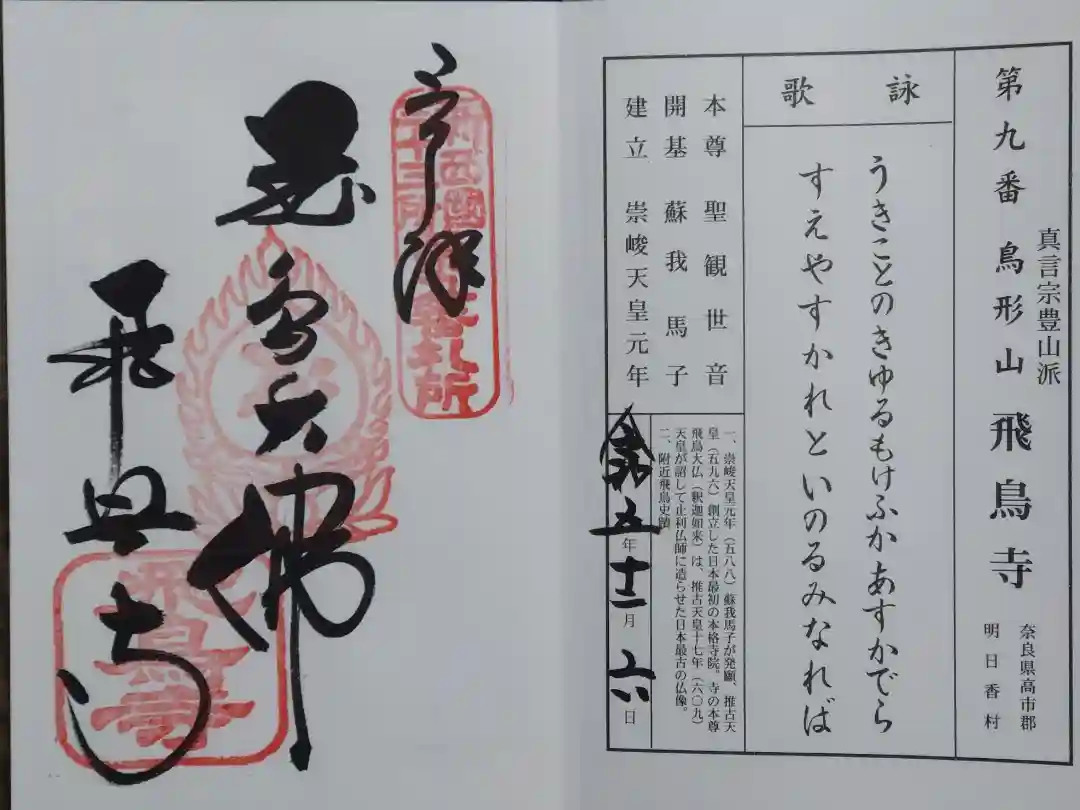 第九番 鳥形山 飛鳥寺
真言宗豊山派
奈良県高市郡
明日香村
詠歌
うきことのきゆるもけふかあすかでら
すえやすかれといのるみなれば
本尊 聖観世音
開基 蘇我馬子
建立 崇峻天皇元年
一、崇峻天皇元年（五八八）蘇我馬子が発願、推古天
皇（五九六）創立した日本最初の本格寺院。寺の本尊
飛鳥大仏（釈迦如来）は、推古天皇十七年（六〇九）
天皇が詔して止利仏師に造らせた日本最古の仏像。
二、附近飛鳥史蹟
令和五年十二月六日
奉拝
飛鳥大佛
飛鳥寺
飛鳥寺